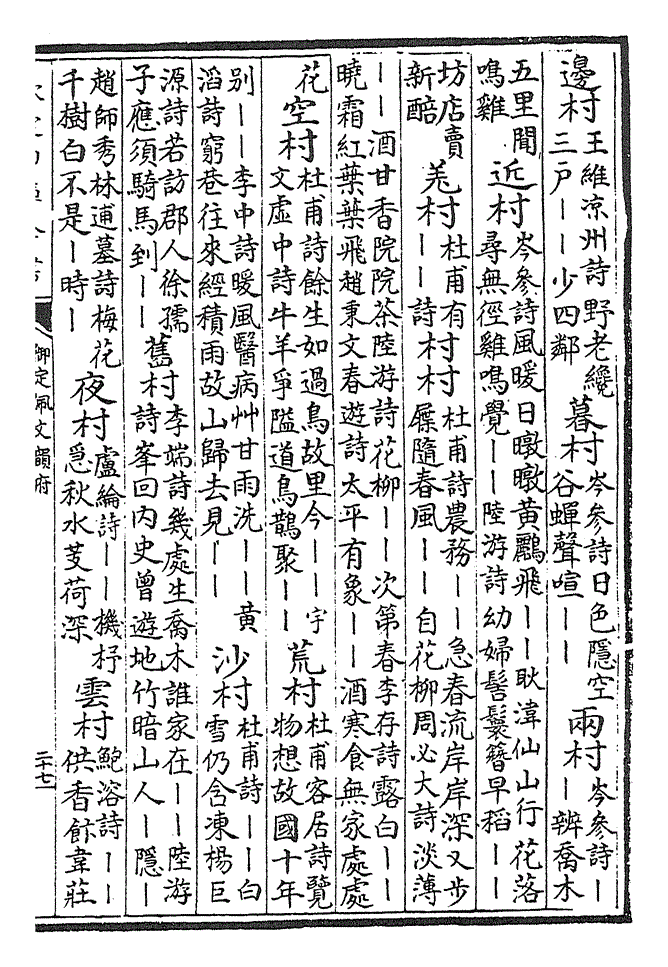 邊村 王維凉州詩野老纔
三戶——少四鄰
暮村 岑參詩日色隱空
谷蟬聲喧——
兩村 岑參詩—
—辨喬木
五里聞
鳴雞
近村 岑參詩風暖日暾暾黃鸝飛——耿湋仙山行花落
尋無徑雞鳴覺——陸游詩幼婦髻鬟簪早稻——
坊店賣
新醅
羌村 杜甫有
——詩
村村 杜甫詩農務——急春流岸岸深又步
屧隨春風——自花柳周必大詩淡薄
——酒甘香院院茶陸游詩花柳——次第春李存詩露白——
曉霜紅葉葉飛趙秉文春遊詩太平有象——酒寒食無家處處
花
空村 杜甫詩餘生如過鳥故里今——宇
文虛中詩牛羊爭隘道鳥鵲聚——
荒村 杜甫客居詩覽
物想故國十年
別——李中詩暖風醫病艸甘雨洗——黃
滔詩窮巷往來經積雨故山歸去見——
沙村 杜甫詩——白
雪仍含凍楊巨
源詩若訪郡人徐孺
子應須騎馬到——
舊村 李端詩幾處生喬木誰家在——陸游
詩峯回內史曾遊地竹暗山人—隱—
趙師秀林逋墓詩梅花
千樹白不是—時—
夜村 盧綸詩——機杼
急秋水芰荷深
雲村 鮑溶詩——
供香飰韋莊
御定佩文韻府
二十七